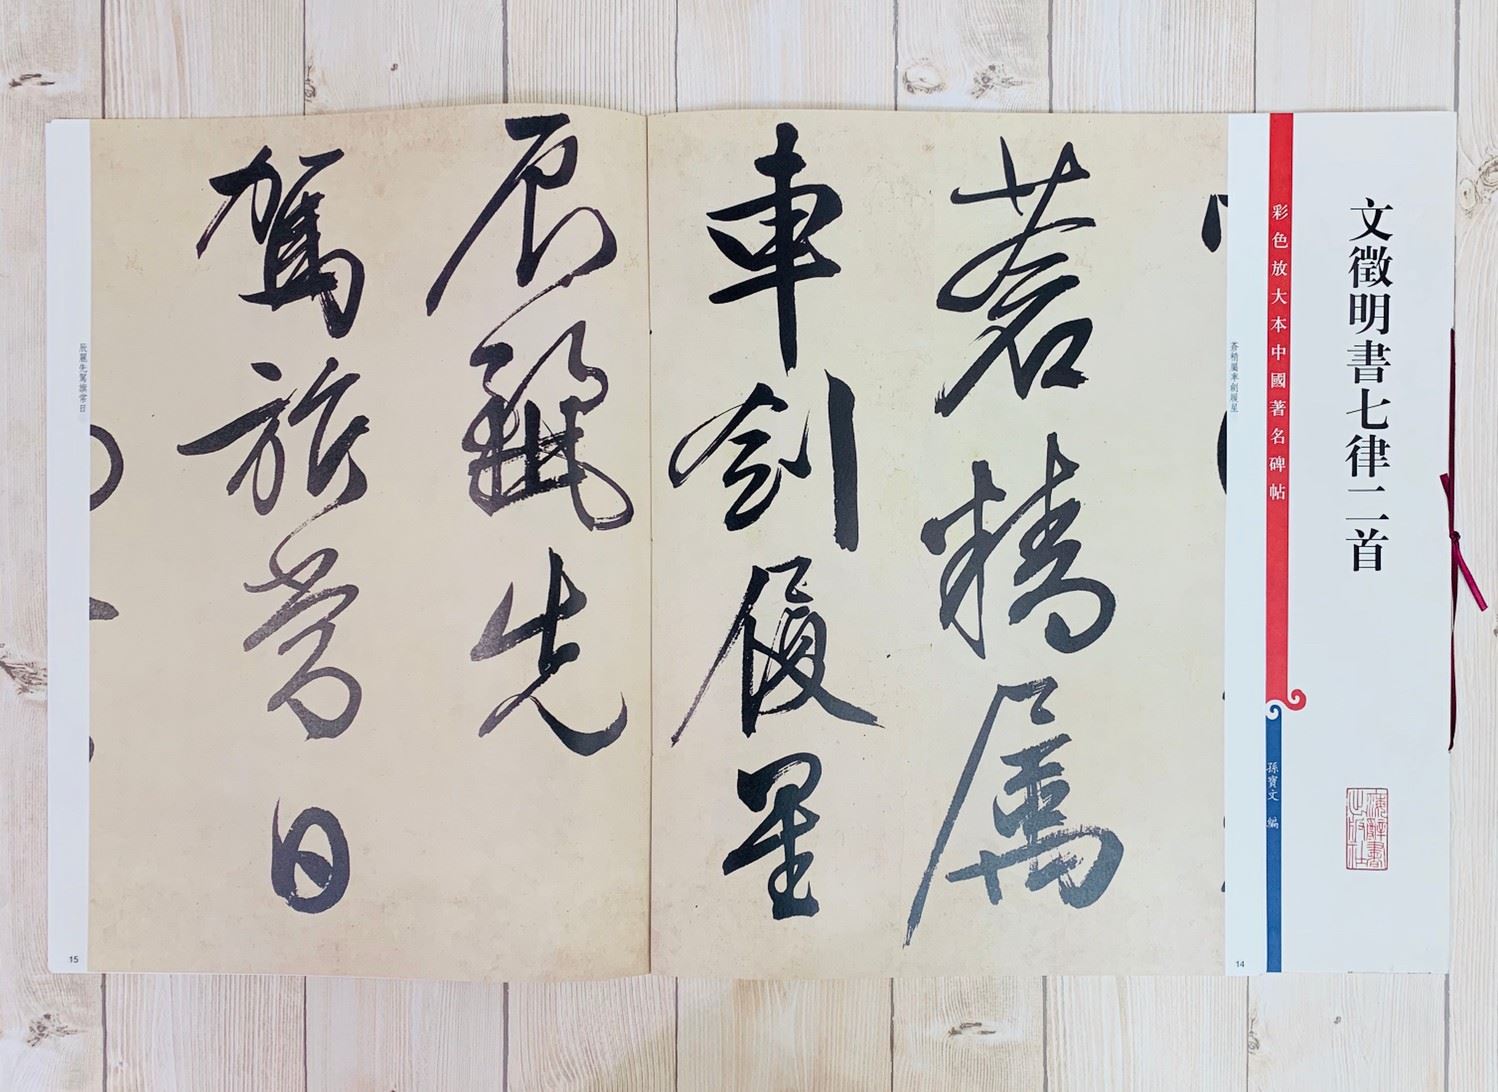 文徵明書七律二首
海辭書
出版社
彩色放大本中國著名碑帖
孫寶文 編
蒼精屬車劍履星
14
蒼精屬
車劍履星
辰麗先
駕旂常日
辰麗先駕旂常日
15